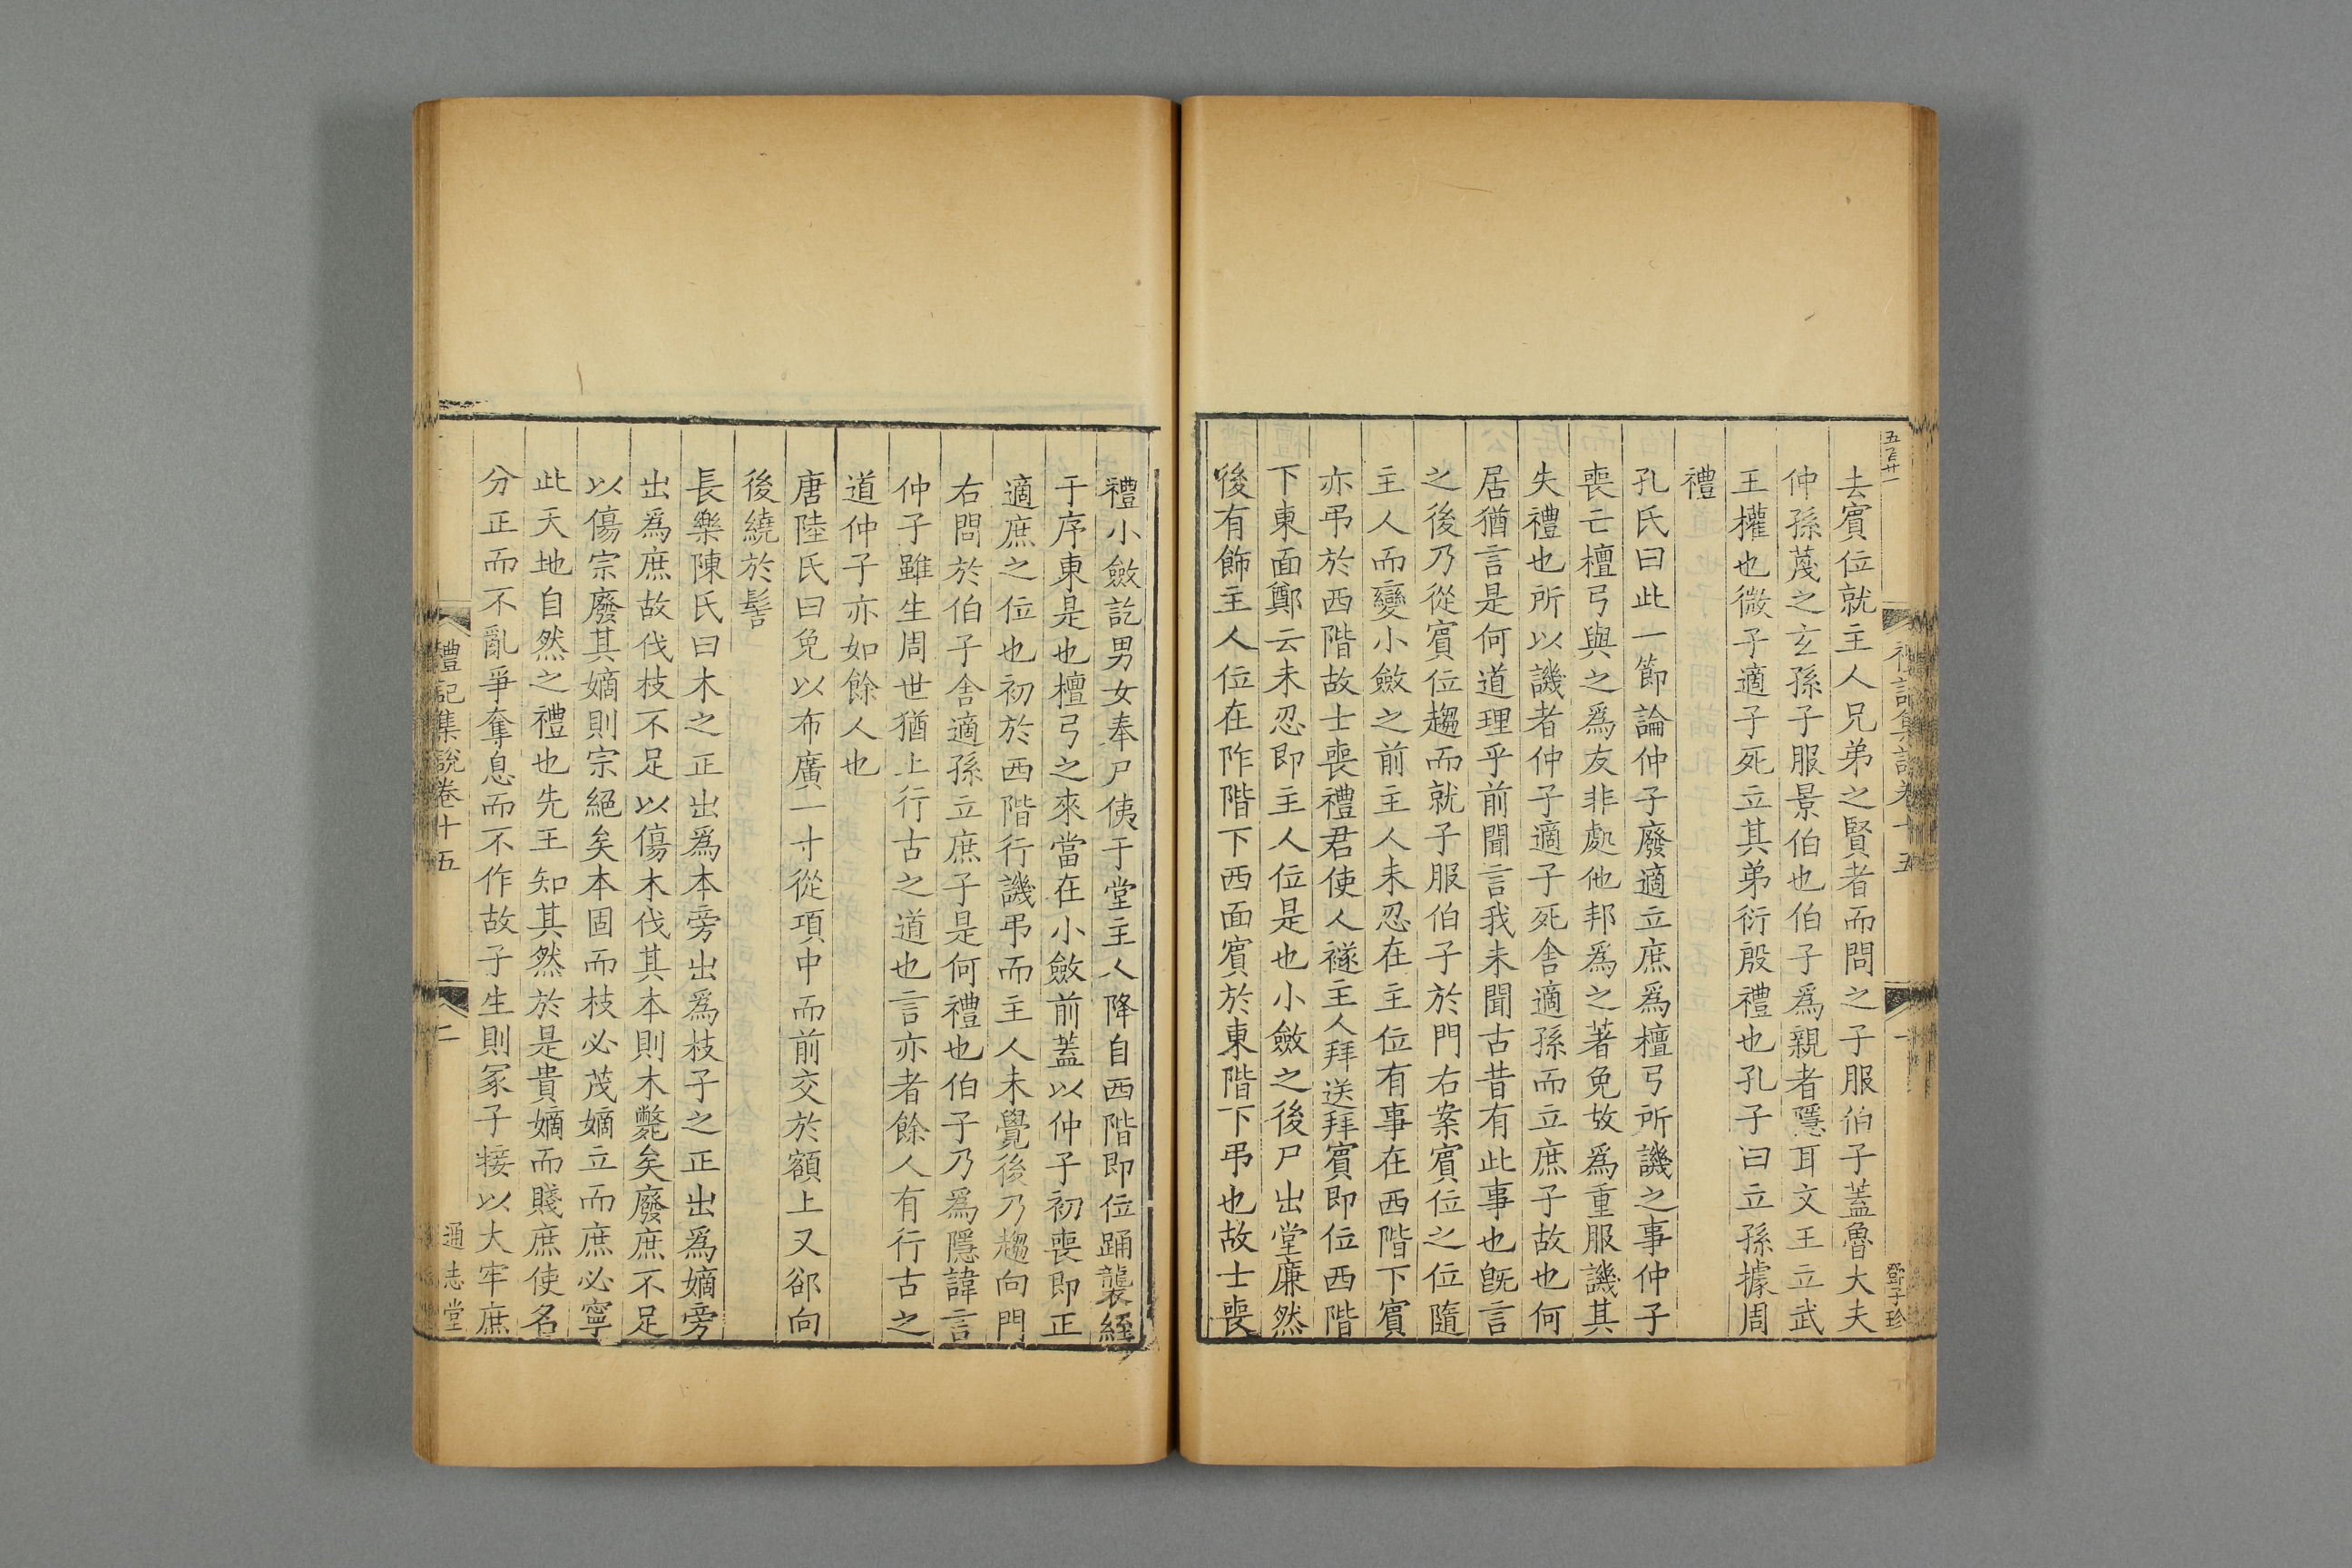 五百廿一
禮記集說卷十五
一
鄧子珍
去賔位就主人兄弟之賢者而問之子服伯子蓋魯大夫
仲孫蔑之玄孫子服景伯也伯子爲親者隱耳文王立武
王權也微子適子死立其弟衍殷禮也孔子曰立孫據周
禮
孔氏曰此一節論仲子廢適立庶爲檀弓所譏之事仲子
喪亡檀弓與之爲友非處他邦爲之著免故爲重服譏其
失禮也所以譏者仲子適子死舍適孫而立庶子故也何
居猶言是何道理乎前聞言我未聞古昔有此事也旣言
之後乃從賔位趨而就子服伯子於門右案賔位之位隨
主人而變小斂之前主人未忍在主位有事在西階下賔
亦弔於西階故士喪禮君使人襚主人拜送拜賔即位西階
下東面鄭云未忍即主人位是也小斂之後尸出堂廉然
後有飾主人位在阼階下西面賔於東階下弔也故士喪
禮小斂訖男女奉尸侇于堂主人降自西階即位踊襲絰
于序東是也檀弓之來當在小斂前蓋以仲子初喪即正
適庶之位也初於西階行譏弔而主人未覺後乃趨向門
右問於伯子舍適孫立庶子是何禮也伯子乃爲隱諱言
仲子雖生周世猶上行古之道也言亦者餘人有行古之
道仲子亦如餘人也
唐陸氏曰免以布廣一寸從項中而前交於額上又郤向
後繞於髻
長樂陳氏曰木之正出爲本旁出爲枝子之正出爲嫡旁
出爲庶故伐枝不足以傷木伐其本則木斃矣廢庶不足
以傷宗廢其嫡則宗絕矣本固而枝必茂嫡立而庶必寧
此天地自然之禮也先王知其然於是貴嫡而賤庶使名
分正而不亂爭奪息而不作故子生則冢子接以大牢庶
禮記集說卷十五
二
通志堂